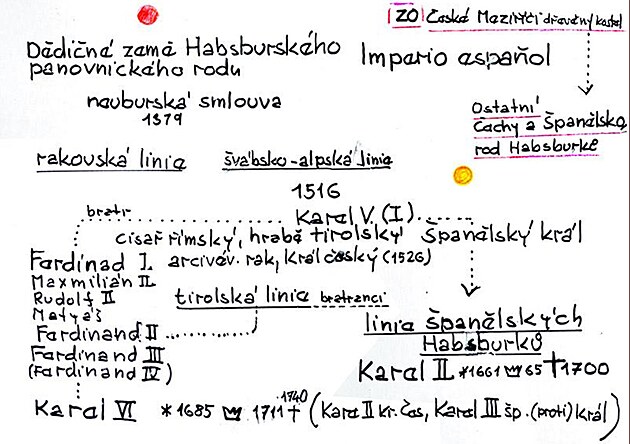 ZO České Meziříčí dřevěný kostel
Dědičné země Habsburského
panovnického rodu
Imperio español
neuburská smlouva
1379
Ostatní
Čechy a Španělsko
rod Habsburků
rakouská linie
švábsko-alpská linie
1516
bratr
Karel V. (I)
císař římský, hrabě tirolský
španělský král
Ferdinad I. arcivév. rak, král český (1526)
Maxmilián II.
Rudolf II
Matyáš
tirolská linie bratranci
Ferdinand II
linie španělských
Habsburků
Ferdinand III
(Ferdinand IV)
Karel II *1661 65 †1700
Karel VI *1685 1711 † 1740 (Karel II kr. čes, Karel III šp. (proti) král)